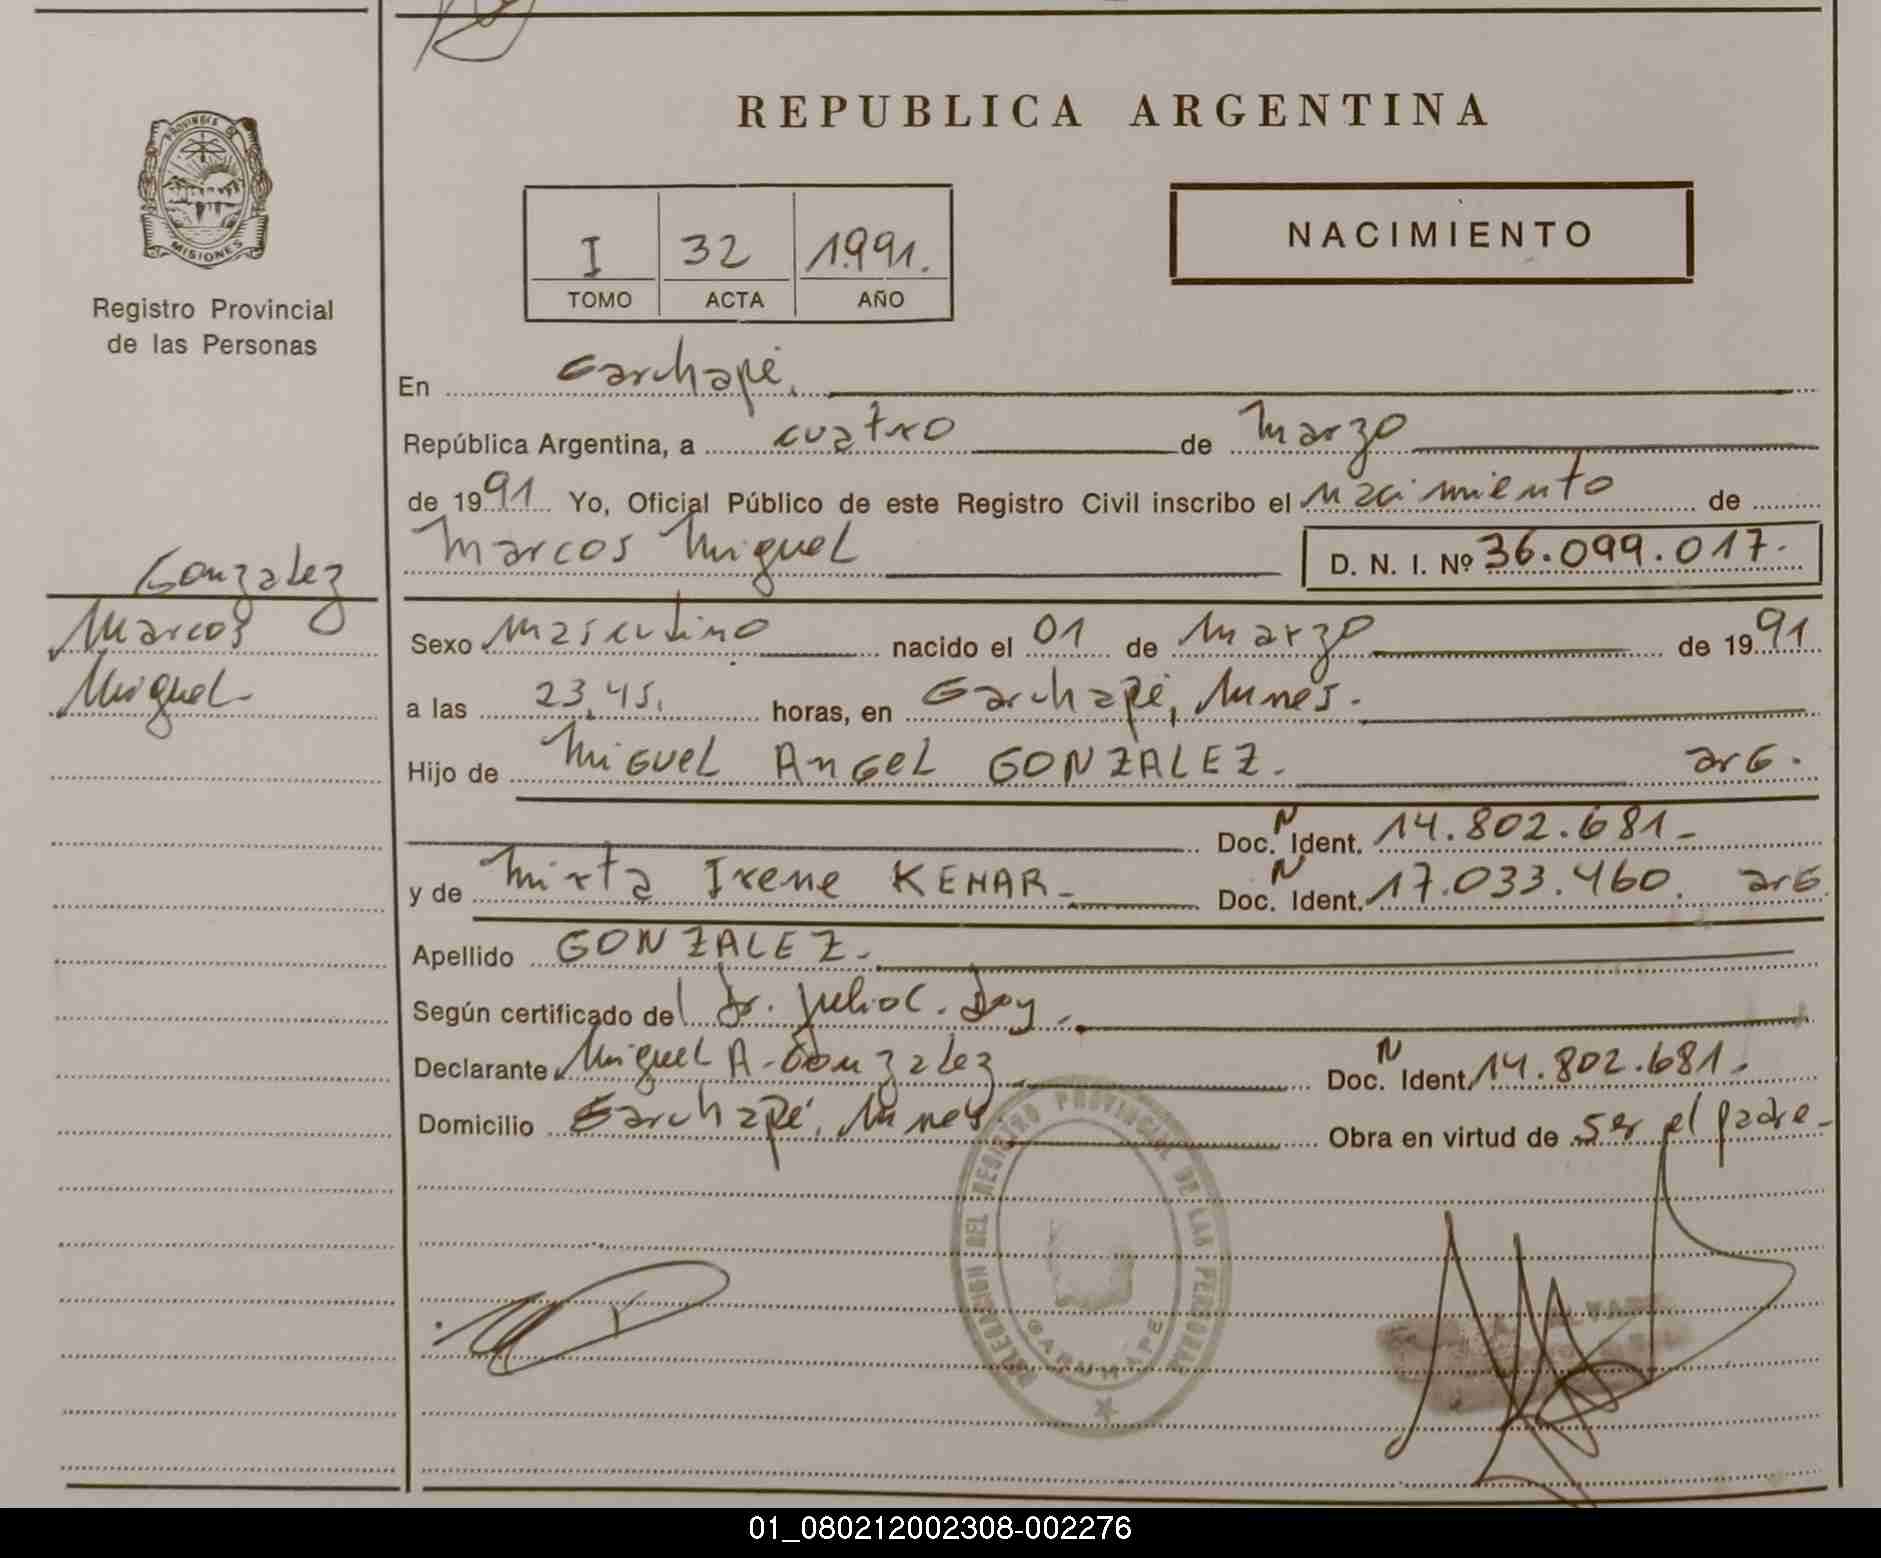 REPUBLICA ARGENTINA
PROVINCIA DE
MISIONES
Registro Provincial
de las Personas
I 32 1.991.
TOMO ACTA AÑO
NACIMIENTO
En Garuhapé.
República Argentina, a cuatro de Marzo
de 1991 Yo, Oficial Público de este Registro Civil inscribo el nacimiento de
Marcos Miguel D. N. I. Nº 36.099.017.
Gonzalez
Marcos
Miguel
Sexo Masculino nacido el 01 de Marzo de 1991
a las 23,45. horas, en Garuhapé, Mnes.
Hijo de Miguel Angel GONZALEZ. arg.
Doc. N Ident. 14.802.681-
y de Mirta Irene KEHAR- Doc. N Ident. 17.033.460. arg.
Apellido GONZALEZ.-
Según certificado del Dr. Julio C. Doy.-
Declarante Miguel A. Gonzalez Doc. N Ident. 14.802.681.-
Domicilio Garuhapé, Mnes Obra en virtud de ser el padre-
DELEGACION DEL REGISTRO PROVINCIAL DE LAS PERSONAS
GARUHAPE
01_080212002308-002276